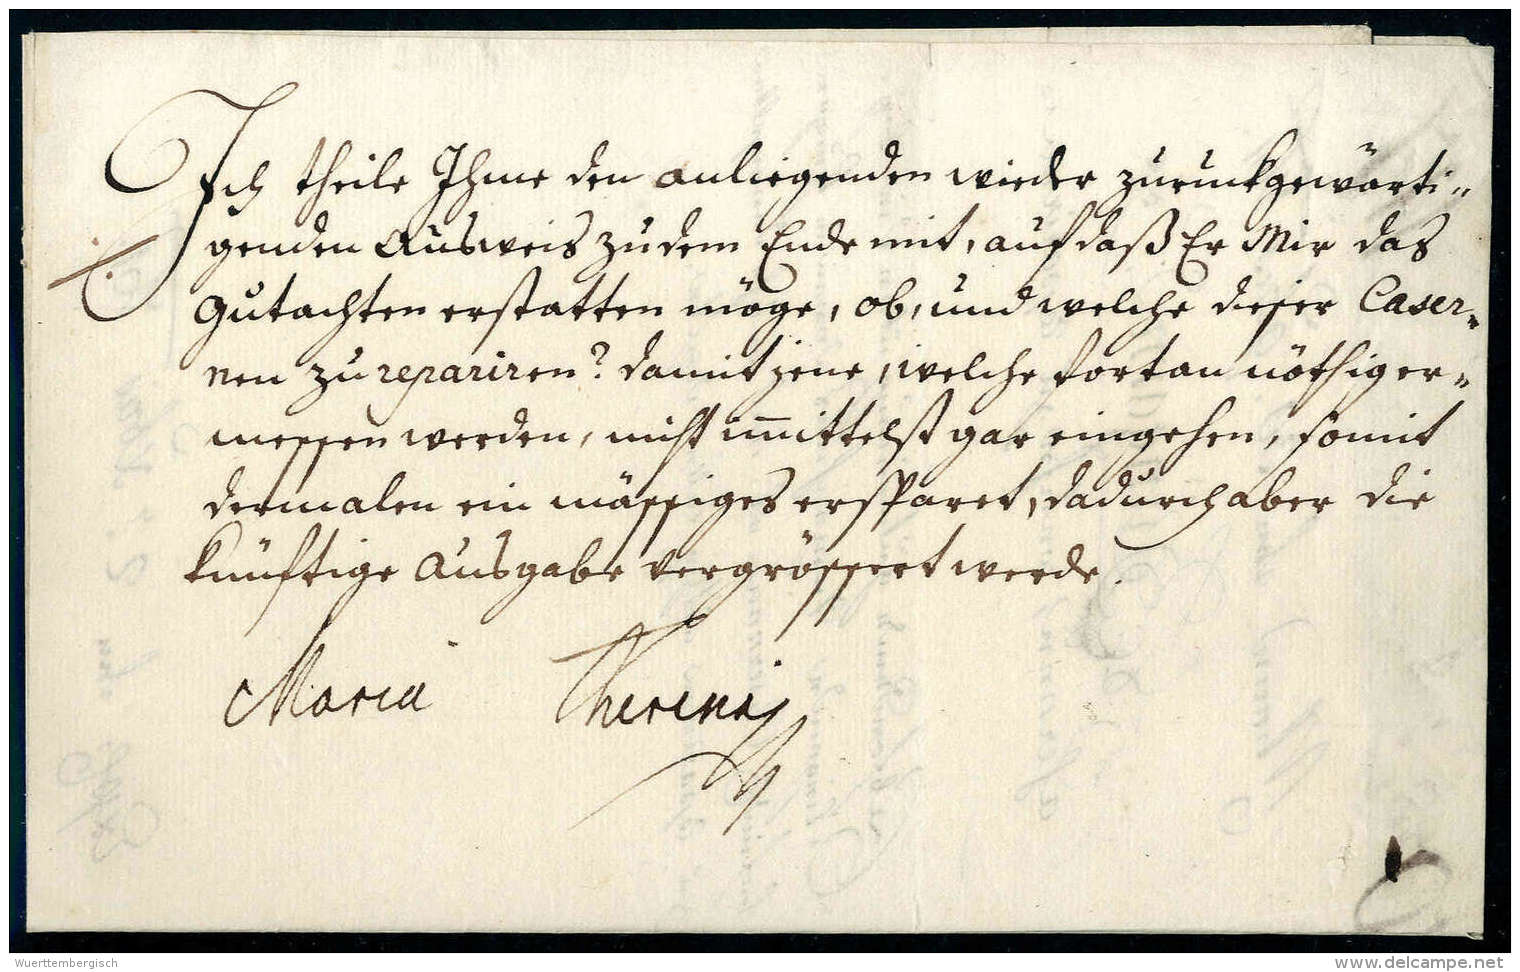 Ich theile Ihme den anliegenden wieder zuruckgewärti=
genden Ausweis zu dem Ende mit, auf daß Er Mir das
Gutachten erstatten möge, ob, und welche dieser Caser=
nen zu repariren? damit jene, welche fortan nöthig er=
messen werden, nicht im̄ittelst gar eingehen, somit
dermalen ein mässiges ersparet, dadurch aber die
künftige Ausgabe vergrössert werde.
Maria Theresia
Wuerttembergisch
delcampe.net